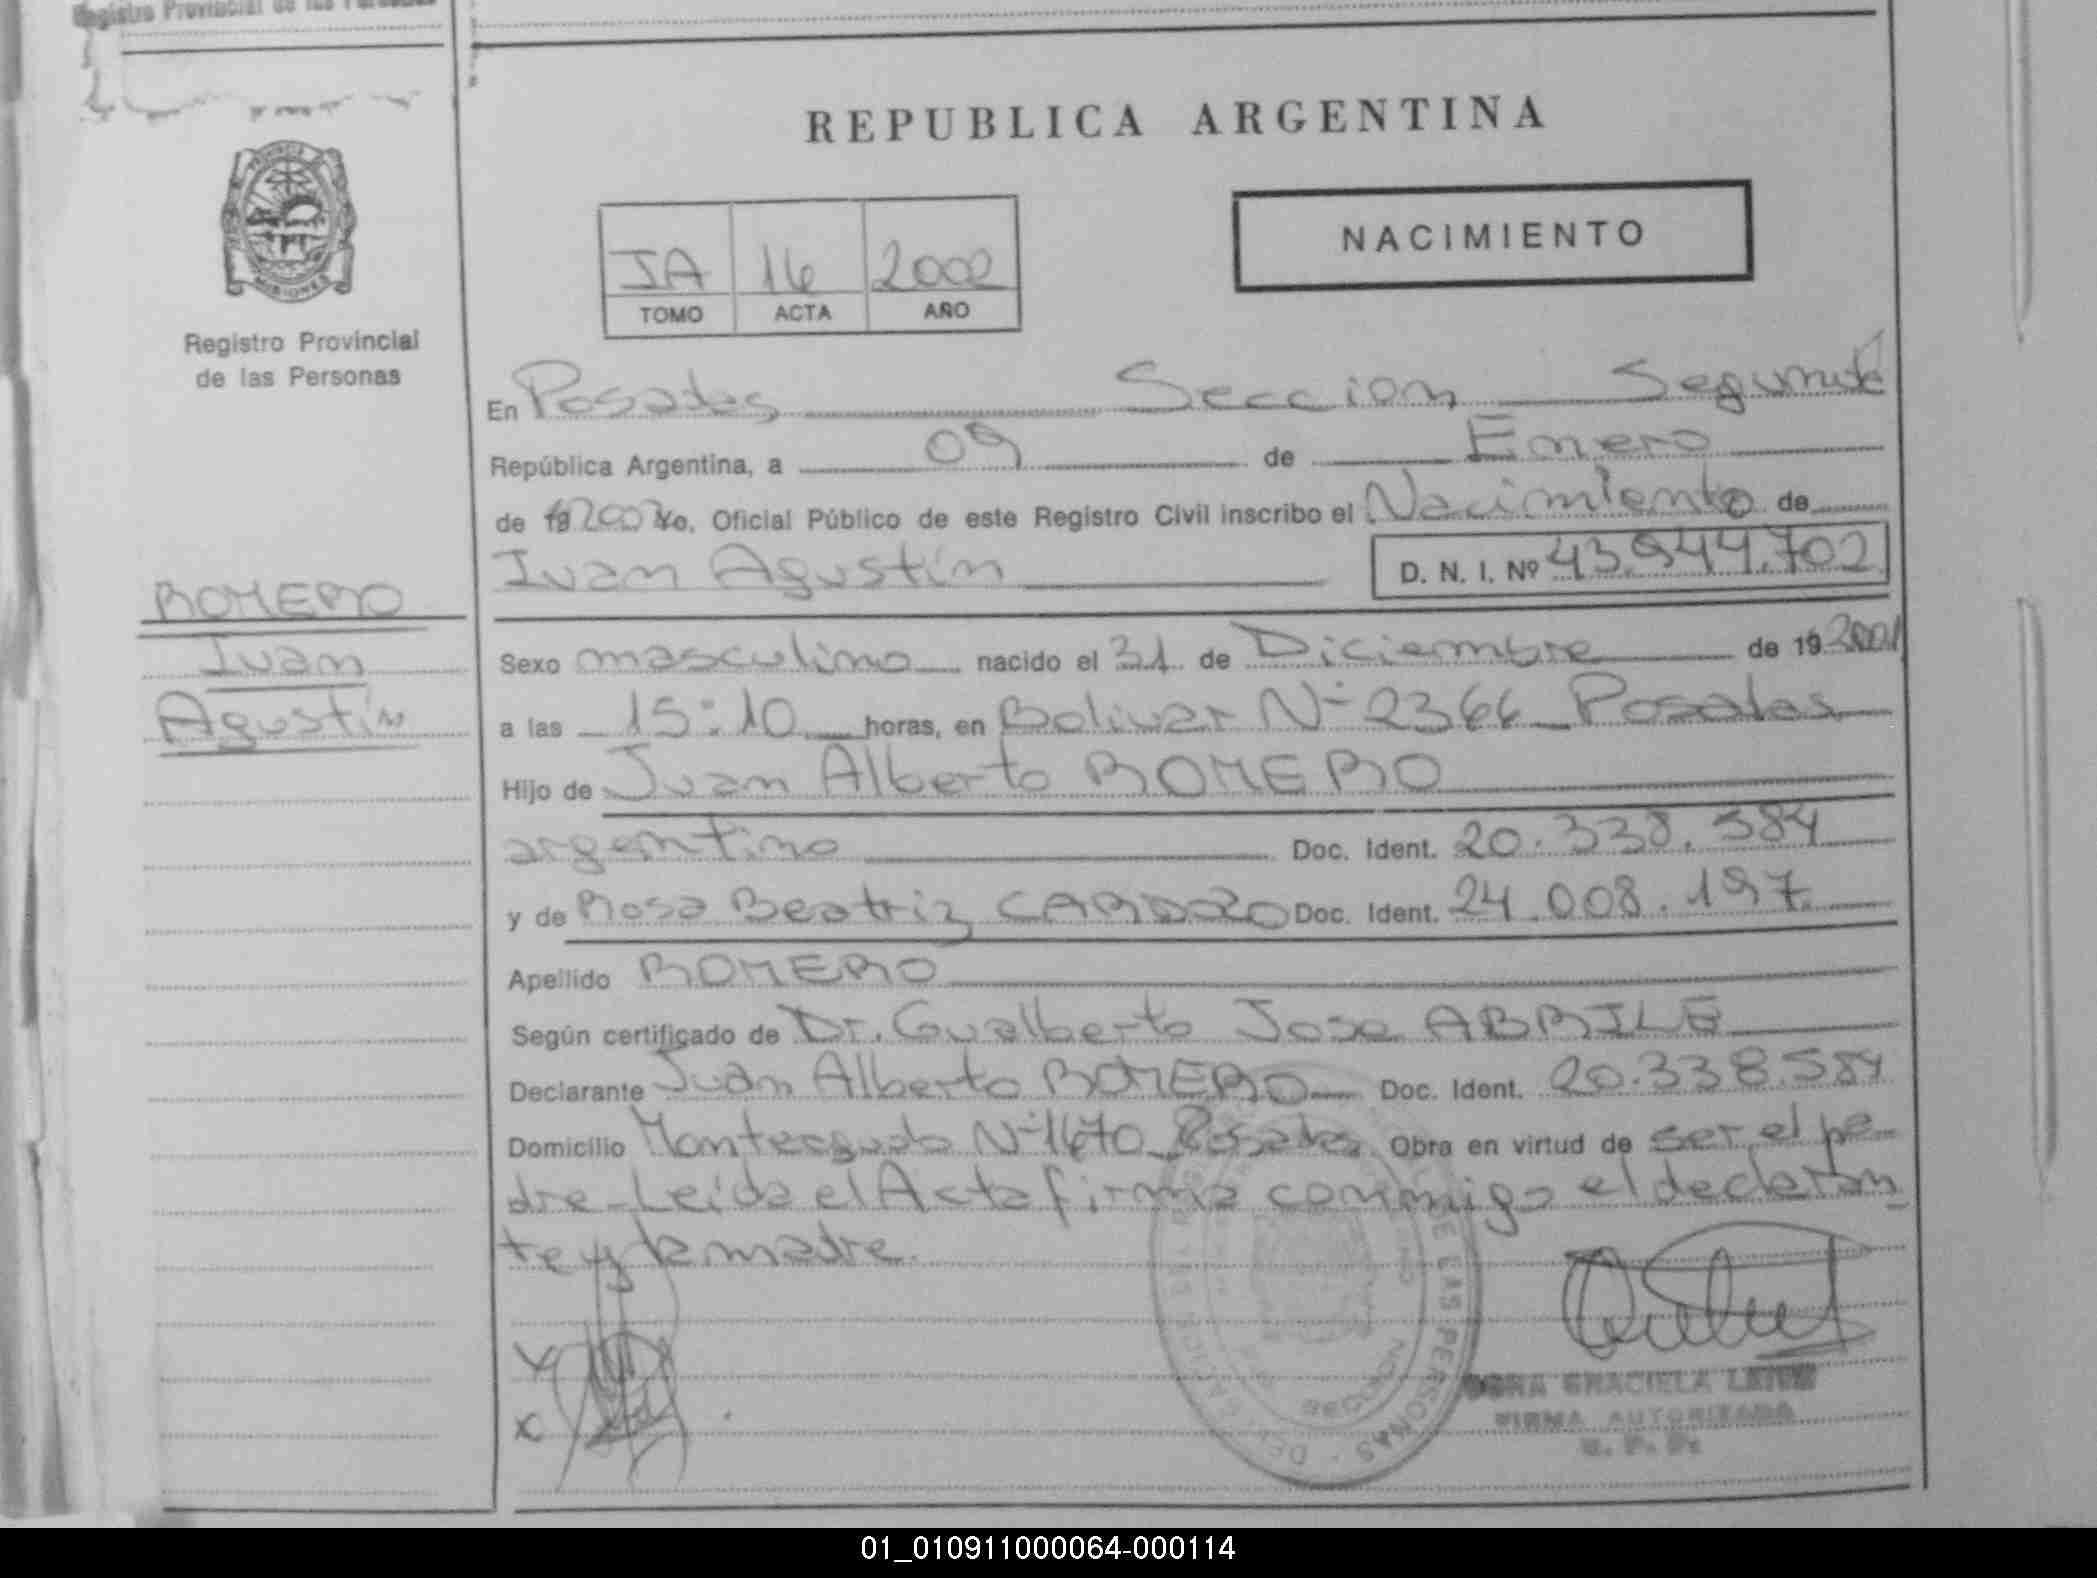 Registro Provincial de las Personas
REPUBLICA ARGENTINA
NACIMIENTO
IA 16 2002
TOMO ACTA AÑO
PROVINCIA
MISIONES
Registro Provincial
de las Personas
ROMERO
Ivan
Agustín
En Posadas Seccion Segunda
República Argentina, a 09 de Enero
de 19 2002 Yo, Oficial Público de este Registro Civil inscribo el Nacimiento de
Ivan Agustín D. N. I. Nº 43.944.702
Sexo masculino nacido el 31 de Diciembre de 19 2001
a las 15:10 horas, en Bolivar Nº 2366 Posadas
Hijo de Juan Alberto ROMERO
argentino Doc. Ident. 20.338.584
y de Rosa Beatriz CARDOZO Doc. Ident. 24.008.197
Apellido ROMERO
Según certificado de Dr. Gualberto Jose ABRILE
Declarante Juan Alberto ROMERO Doc. Ident. 20.338.584
Domicilio Monteagudo Nº 1670 Posadas Obra en virtud de ser el pa-
dre - Leída el Acta firma conmigo el declaran
te y la madre.
X
X
DE LAS PERSONAS
GRACIELA
FIRMA AUTORIZADA
R. P. P.
01_010911000064-000114